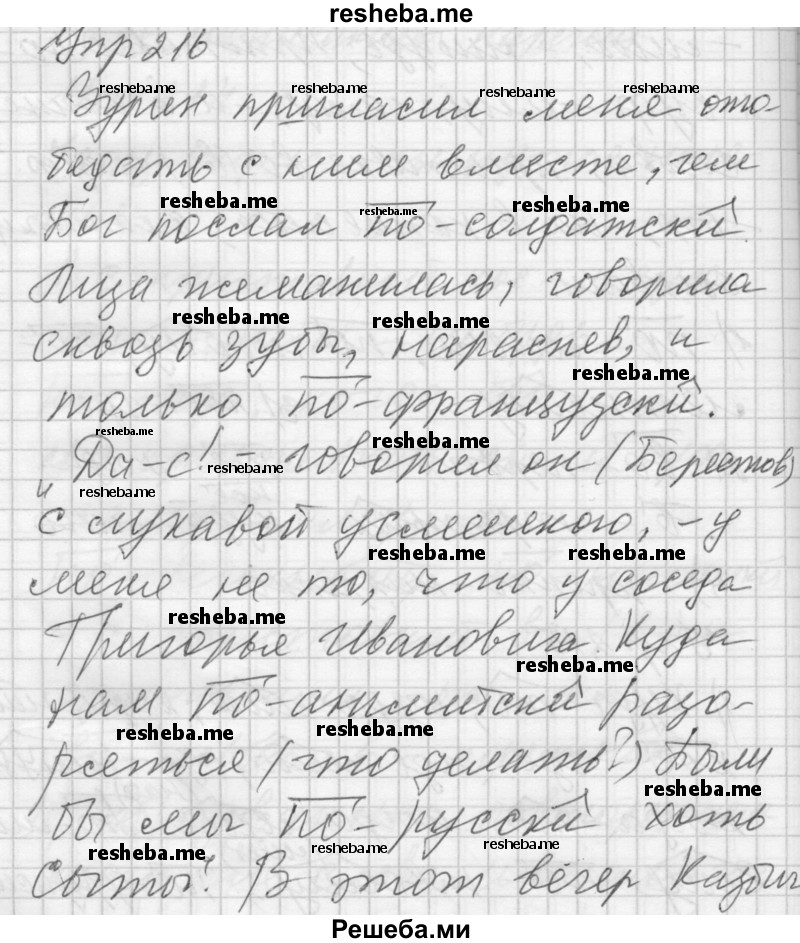 resheba.me
Упр 216
Зурин пригласил меня ото-
бедать с ним вместе, чем
Бог послал по-солдатски.
Лиза жеманилась, говорила
сквозь зубы, нараспев, и
только по-французски.
„Да-с! – говорил он (Берестов)
с лукавой усмешкою, – у
меня не то, что у соседа
Григорья Ивановича. Куда
нам по-английски разо-
ряться (что делать?) Были
бы мы по-русски хоть
сыты! В этот вечер Казбич
Решеба.ми